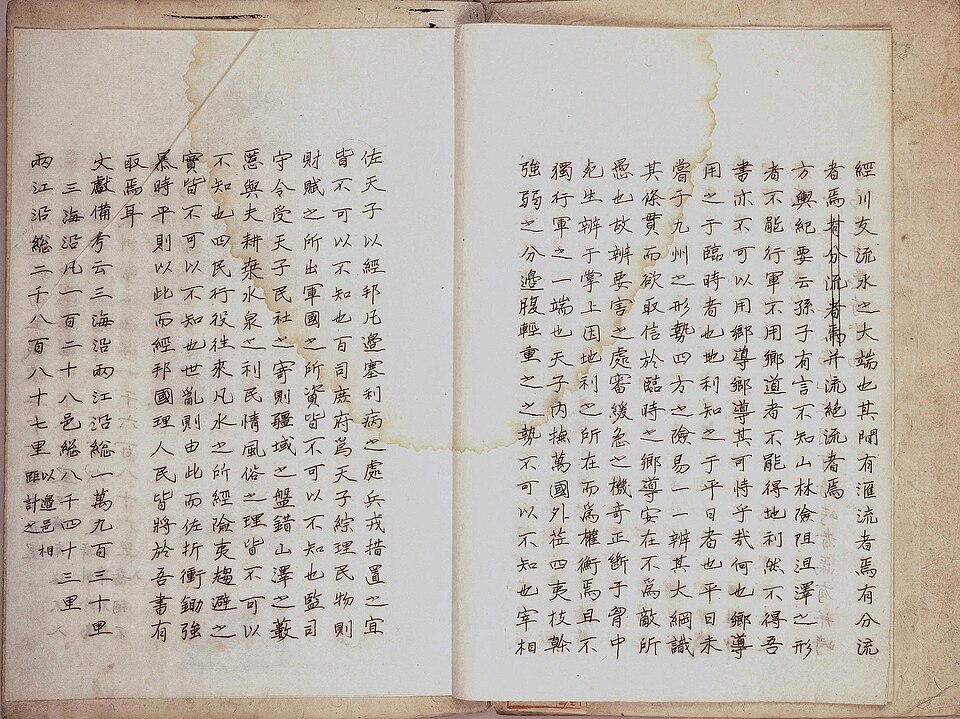 經川支流水之大端也其間有滙流者焉有分流
者焉有分流者焉并流絶流者焉
方輿紀要云孫子有言不知山林險阻沮澤之形
者不能行軍不用鄉道者不能得地利然不得吾
書亦不可以用鄉導鄉導其可恃乎哉何也鄉導
用之于臨時者也地利知之于平日者也平日未
嘗于九州之形勢四方之險易一一辨其大綱識
其條貫而欲取信於臨時之鄉導安在不爲敵所
愚也故辨要害之處審緩急之機奇正斷于胷中
死生辨于掌上因地利之所在而爲權衡焉且不
獨行軍之一端也天子內撫萬國外莅四夷枝幹
強弱之分邊腹輕重之之勢不可以不知也宰相
佐天子以經邦凡邊塞利病之處兵戎措置之宜
皆不可以不知也百司庶府爲天子綜理民物則
財賦之所出軍國之所資皆不可以不知也監司
守令受天子民社之寄則疆域之盤錯山澤之藪
慝與夫耕桒水泉之利民情風俗之理皆不可以
不知也四民行役徃來凡水之所經險夷趨避之
實皆不可以不知也世亂則由此而佐折衝鋤強
暴時平則以此而經邦國理人民皆將於吾書有
取焉耳
文獻備考云三海沿兩江沿総一萬九百三十里
三海沿凡一百二十八邑総八千四十三里
兩江沿総二千八百八十七里以邊邑相距計之